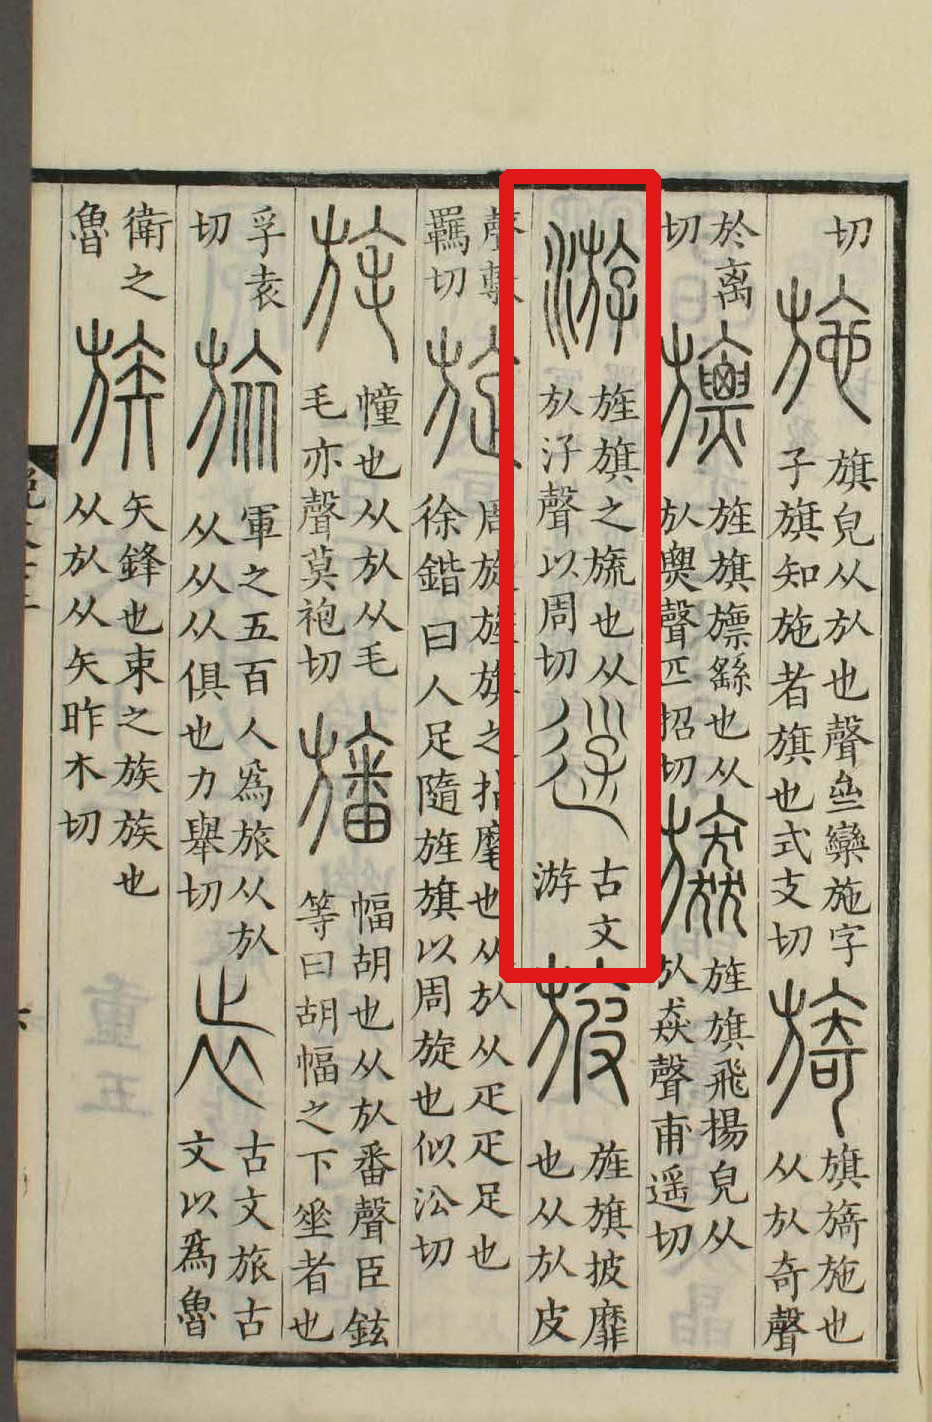 切施旗皃从㫃也聲亝欒施字子旗知施者旗也式支切旖旗旖施也从㫃奇聲
於离切旚旌旗旚繇也从㫃䙳聲匹招切旌旗飛揚皃从㫃猋聲甫遥切
游旌旗之旒也从㫃汓聲以周切𨒰古文游旇旌旗披靡也从㫃皮
聲敷羈切旋周旋旌旗之指麾也从㫃从疋疋足也徐鍇曰人足隨旌旗以周旋也似沿切
旄幢也从㫃从毛毛亦聲莫袍切旛幅胡也从㫃番聲臣鉉等曰胡幅之下垂者也
孚袁切旅軍之五百人爲旅从㫃从从从俱也力舉切𣥐古文旅古文以爲魯
衛之魯族矢鋒也束之族族也从㫃从矢昨木切